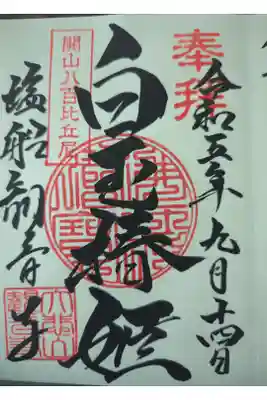 奉拝
令和五年九月十四日
白玉椿姫
開山八百比丘尼
塩船観音寺